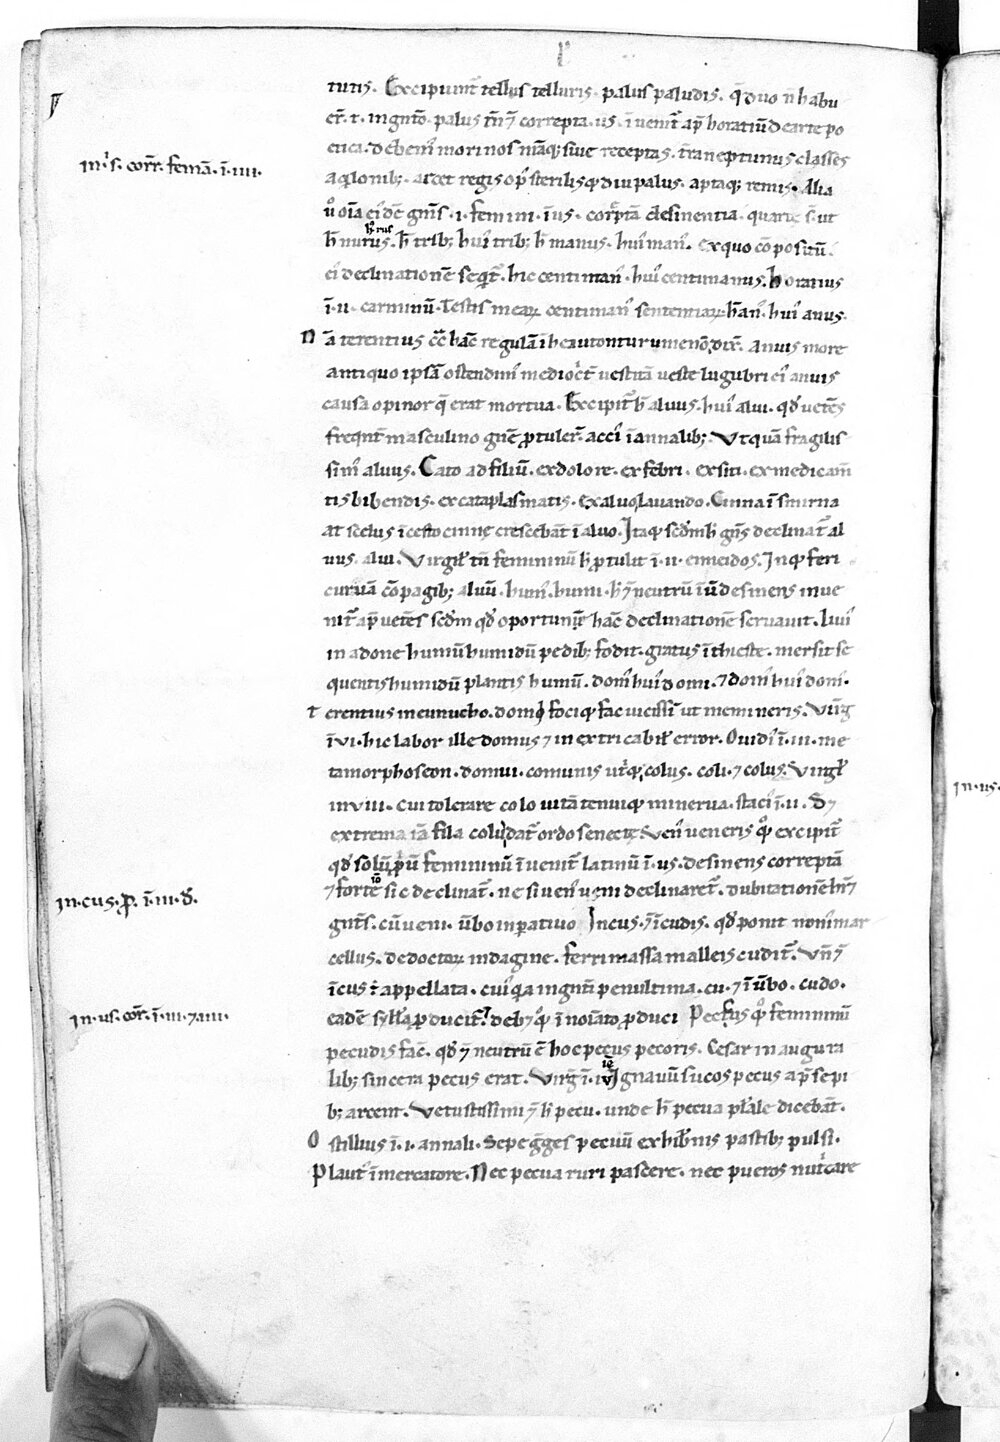 tutis. Excipiunt̄ tellus telluris. palus paludis. q̄ duo n̄ habu
er̄. t. in gn̄to. palus tn̄ ⁊ correpta. us. īvenit̄ ap̄ horatiū de arte po
etica. debem̓ morti nos
aq̓lonib; arcet regis op̓ sterilisq; diu palus. aptaq; remis. Alia
v̓o oīa ei̓dē gn̄is .i. femini. ī us. corr̄ptā desinentia. quarte s̄. ut
h̄ nurus. h̄ trib; hui̓ trib; h̄ manus. hui̓ man̓. ex quo cōpositū.
ei̓ declinationē seqit̄. hic centiman̓. hui̓ centimanus. horatius
ī .ii. carminū. Testis mearꝝ centiman̓ sententiarꝝ. h̄ an̓. hui̓ anus.
Nā terentius cō hāc regulā ī heautonturumenō. dix̄. Anuis more
antiquo ipsā ostendim̓ mediocr̓t̄ vestitā veste lugubri ei̓ anuis
causa opinor q̄ erat mortua. Excipit̄ h̄ aluus. hui̓ alui. qđ vetēs
freqnt̄ masculino gn̄e ꝓtuler̄. acci̓ ī annalib; Vt quā fragilis
sim̓ aluus. Cato ad filiū. ex dolore. ex febri. ex siti. ex medicam̄
tis bibendis. ex cataplasmatis. ex aluo lauando. Cinna ī smirna
at scelus īcesto cinnę crescebāt ī aluo. Itaq; scđm h̓ gn̄s declinat̄ al
uus. alui. Virgil̓ tn̄ femininū h̓ ꝓtulit ī .ii. eneidos. Inq; feri
curuā cōpagib; aluū. hum̓. humi. h̓ ⁊ neutrū ī ū desinens inue
nit̄ ap̄ vetēs scđm qđ oportunę̄ hāc declinationē seruauit. liui̓
in adone humū humidū pedib; fodit. gratus ī thieste. mersit se
quentis humidū plantis humū. dom̓ hui̓ domi. ⁊ dom̓ hui̓ dom̓.
terentius in eunucho. domi q; foci q; fac uicissī ut memineris. Virg̓
ī vi. hic labor ille domus ⁊ inextricabil̓ error. Ouidi̓ ī .iii. me
tamorphoseon. domui. comunis utrq;. colus. coli. ⁊ colus. Virgil̓
in viii. cui tolerare colo uitā tenuiq; minerva. staci̓ ī .ii. đ ⁊
extrema iā fila colu dat̄ ordo senectę. Ven̓ veneris q̓ excipit̄
qđ solū ꝓpriū femininū īvenit̄ latinū ī .us. desinens correptā
⁊ forte iō sic declinat̄. ne si ven̓ veni declinaret̄. dubitationē
gn̄ts. cū veni. v̄bo inperatiuo. Incus. ⁊ īcudis. qđ ponit nonī mar
cellus. de doctorꝝ indagine. ferri massa malleis cudit̄. Vn̄ ⁊
īcus ē appellata. cui̓ qa in gn̄ti penultima. cu. ⁊ ī v̄bo. cudo.
eadē syll̓a ꝓducit̄. deb; q̓ ī noīato ꝓduci. Pecus q̓ femininū
pecudis fac̄. qđ ⁊ neutrū ē hoc pecus pecoris. Cesar in augura
lib; sincera pecus erat. Virg̓ ī .iiii. Ignauū fucos pecus a p̄sepi
b; arcent. Vetustissimi ⁊ h̓ pecu. unde h̓ pecua pl̓ale dicebāt.
Ostilius ī .i. annali. Sepe ḡges pecuū ex hib̓nis pastib; pulsi.
Plaut̓ ī mercatore. Nec pecua ruri pascere. nec pueros nutr̓care
in .i̓s. corr̄. femā. ī. iiii.
in. cus. ꝓ. ī. iii. đ.
in. us. cor̄. ī. iii. ⁊ iiii.
in. us.